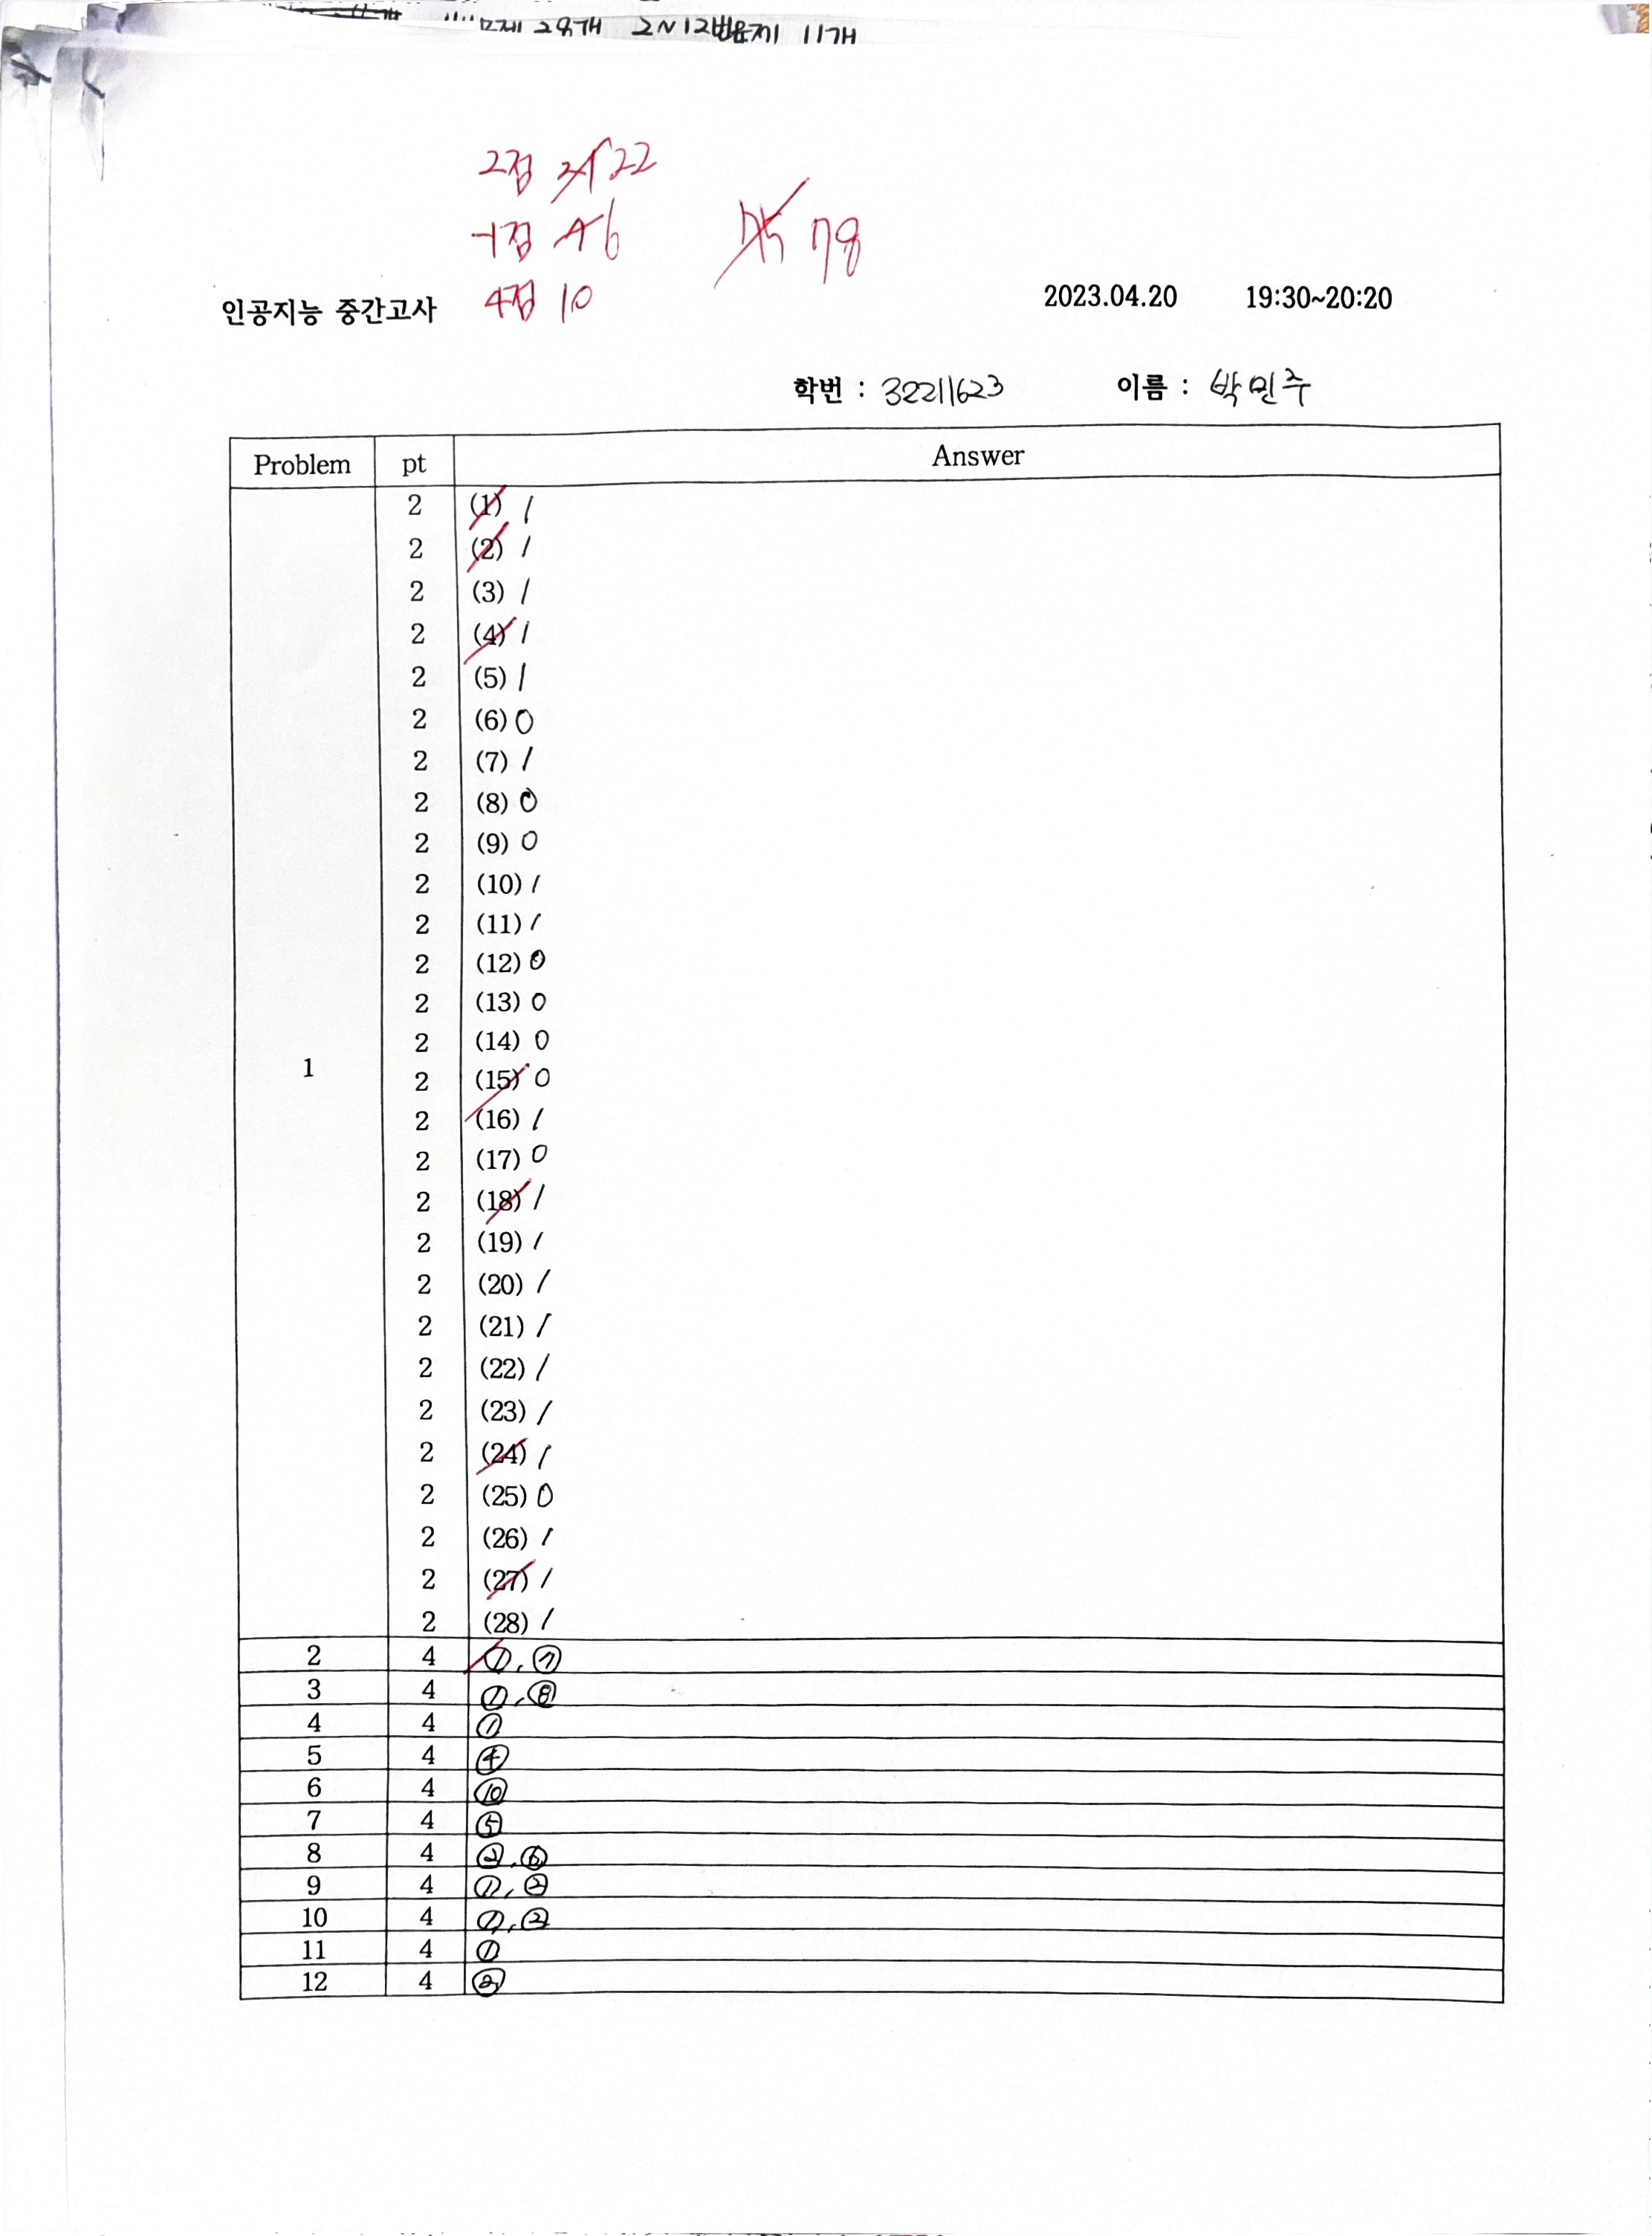 문제 28개 2~12번문제 11개
2점 21 22
-1점 6
75 78
4점 10
인공지능 중간고사 2023.04.20 19:30~20:20
학번 : 32211623 이름 : 박민주
Problem pt Answer
1
2 (1) 1
2 (2) 1
2 (3) 1
2 (4) 1
2 (5) 1
2 (6) 0
2 (7) 1
2 (8) 0
2 (9) 0
2 (10) 1
2 (11) 1
2 (12) 0
2 (13) 0
2 (14) 0
2 (15) 0
2 (16) 1
2 (17) 0
2 (18) 1
2 (19) 1
2 (20) 1
2 (21) 1
2 (22) 1
2 (23) 1
2 (24) 1
2 (25) 0
2 (26) 1
2 (27) 1
2 (28) 1
2 4 ①, ⑦
3 4 ①, ⑧
4 4 ①
5 4 ④
6 4 ⑩
7 4 ⑤
8 4 ②, ⑥
9 4 ①, ②
10 4 ①, ②
11 4 ①
12 4 ②